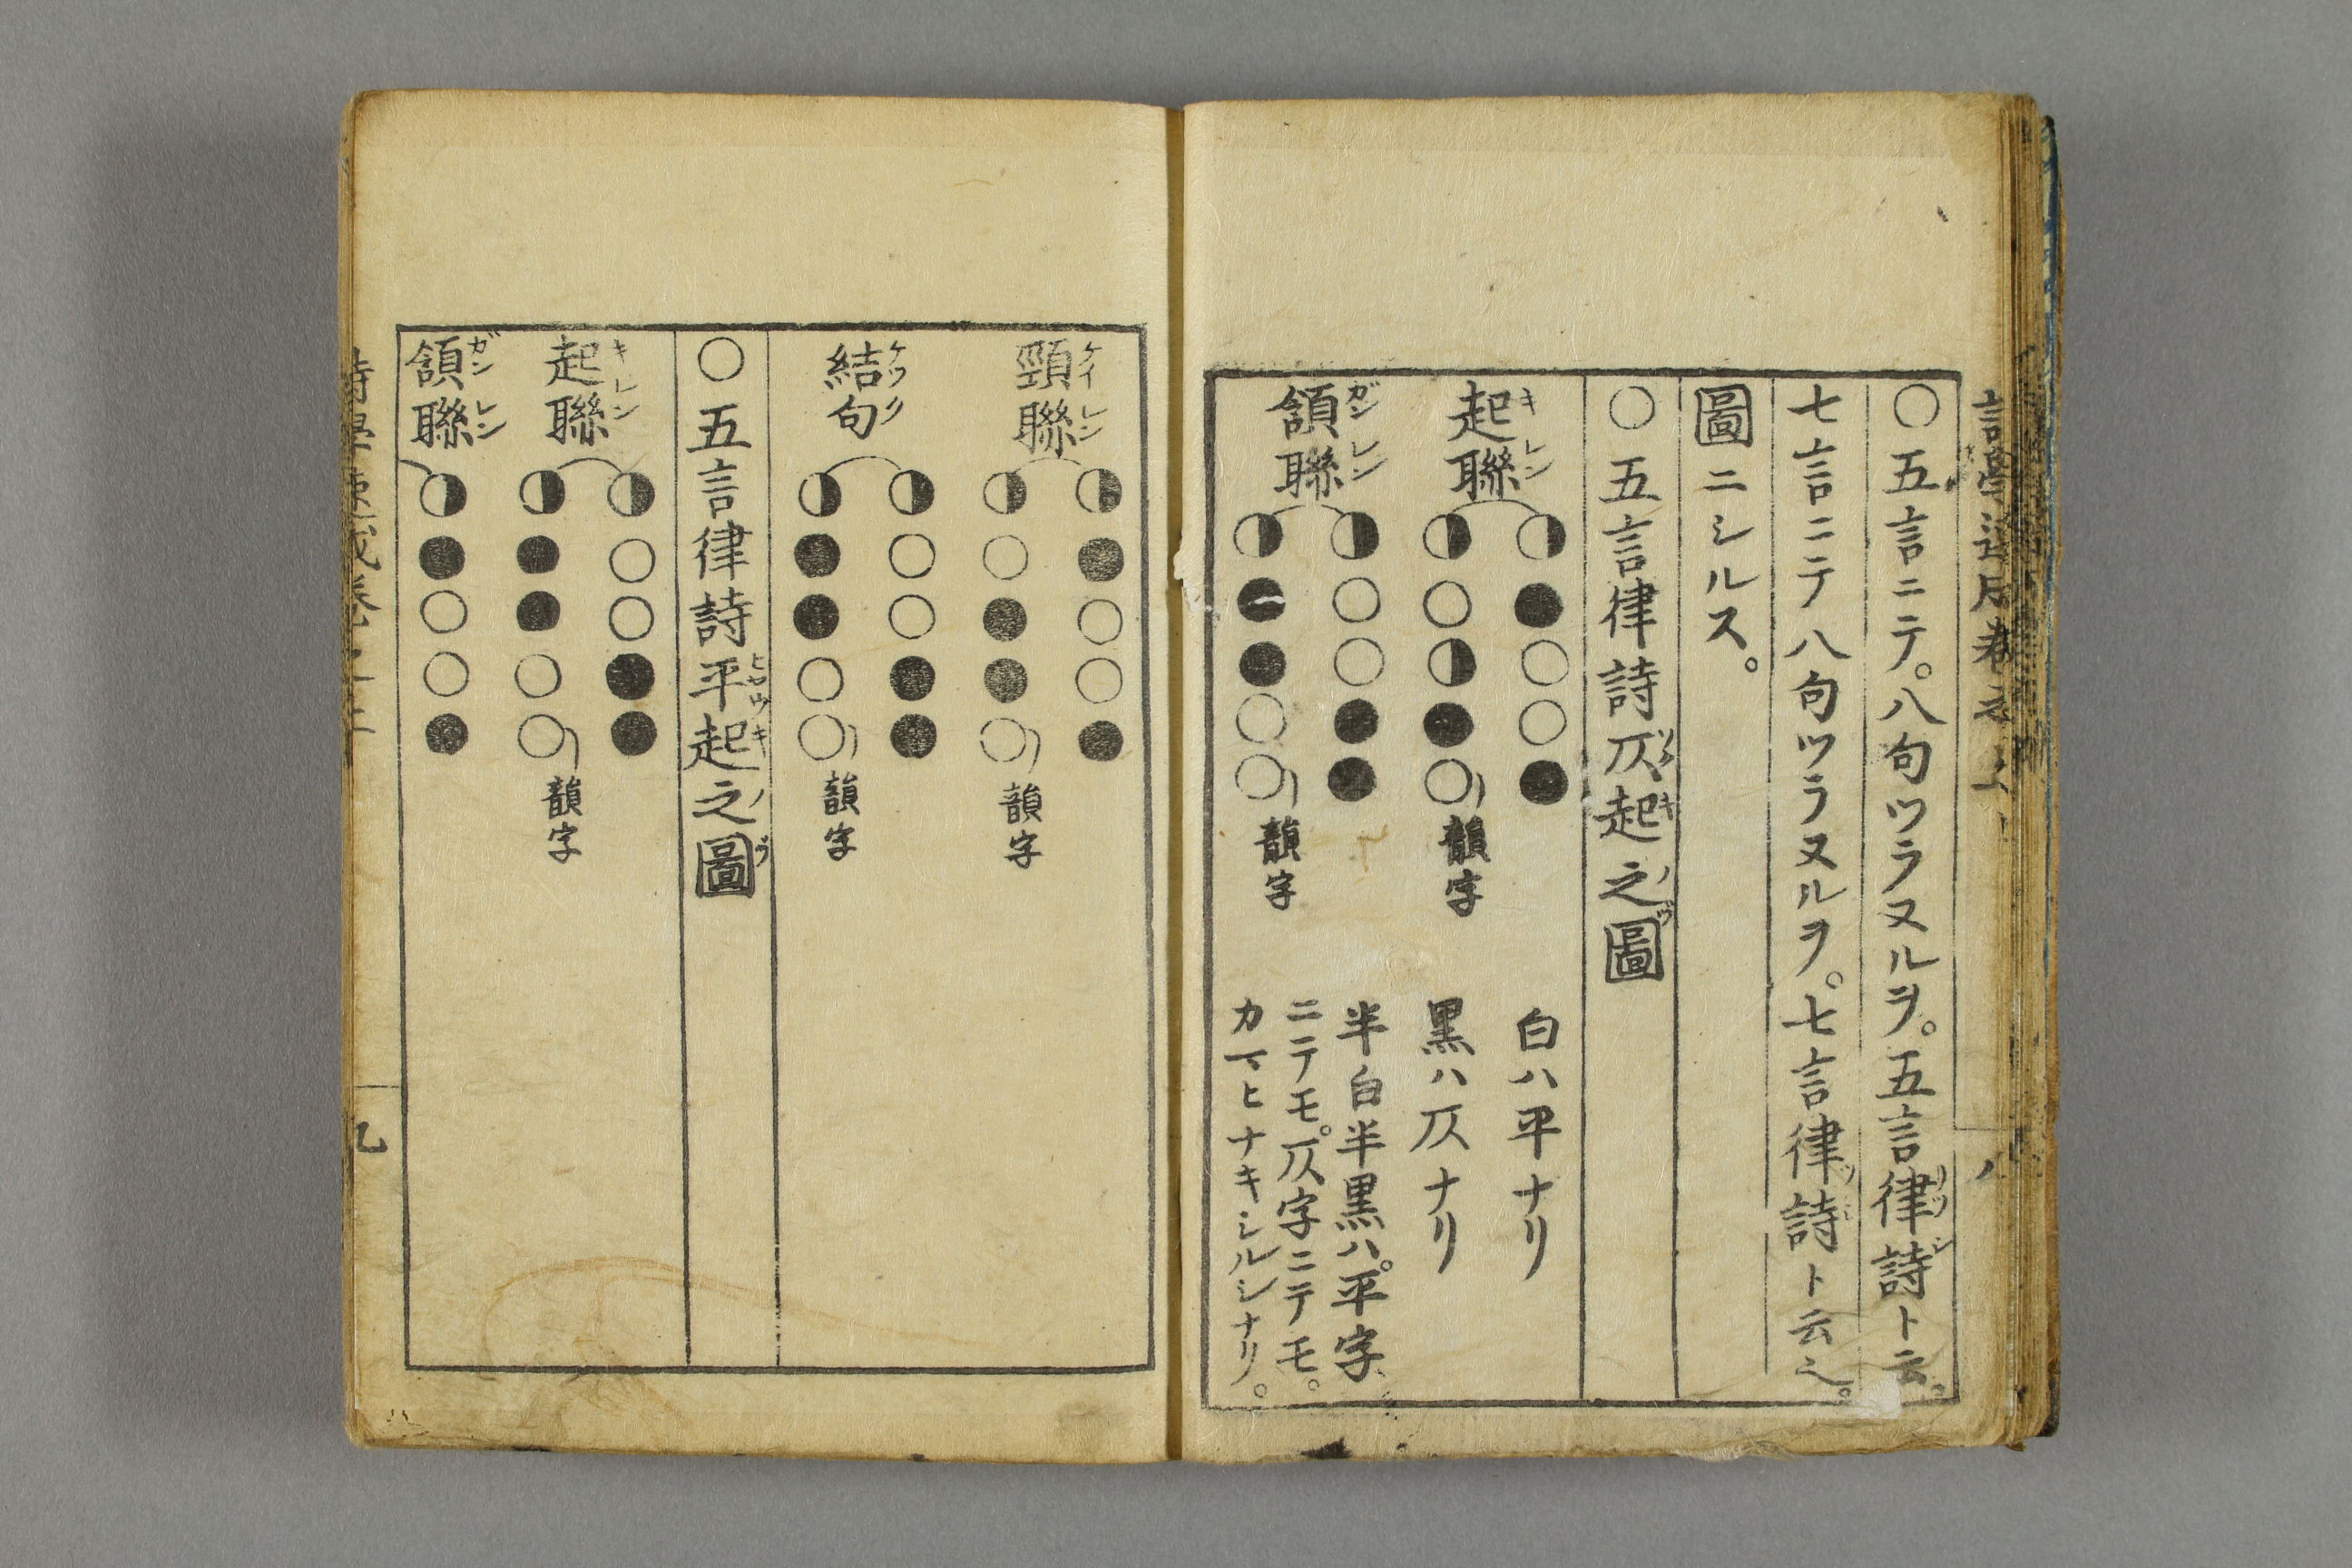 ○五言ニテ。八句ツラヌルヲ。五言律詩ト云。
七言ニテ八句ツラヌルヲ。七言律詩ト云之。
圖ニシルス。
○五言律詩仄起之圖
起聯
韻字
頷聯
韻字
白ハ平ナリ
黒ハ仄ナリ
半白半黒ハ。平字
ニテモ。仄字ニテモ。
カマヒナキシルシナリ。
頸聯
韻字
結句
韻字
○五言律詩平起之圖
起聯
韻字
頷聯